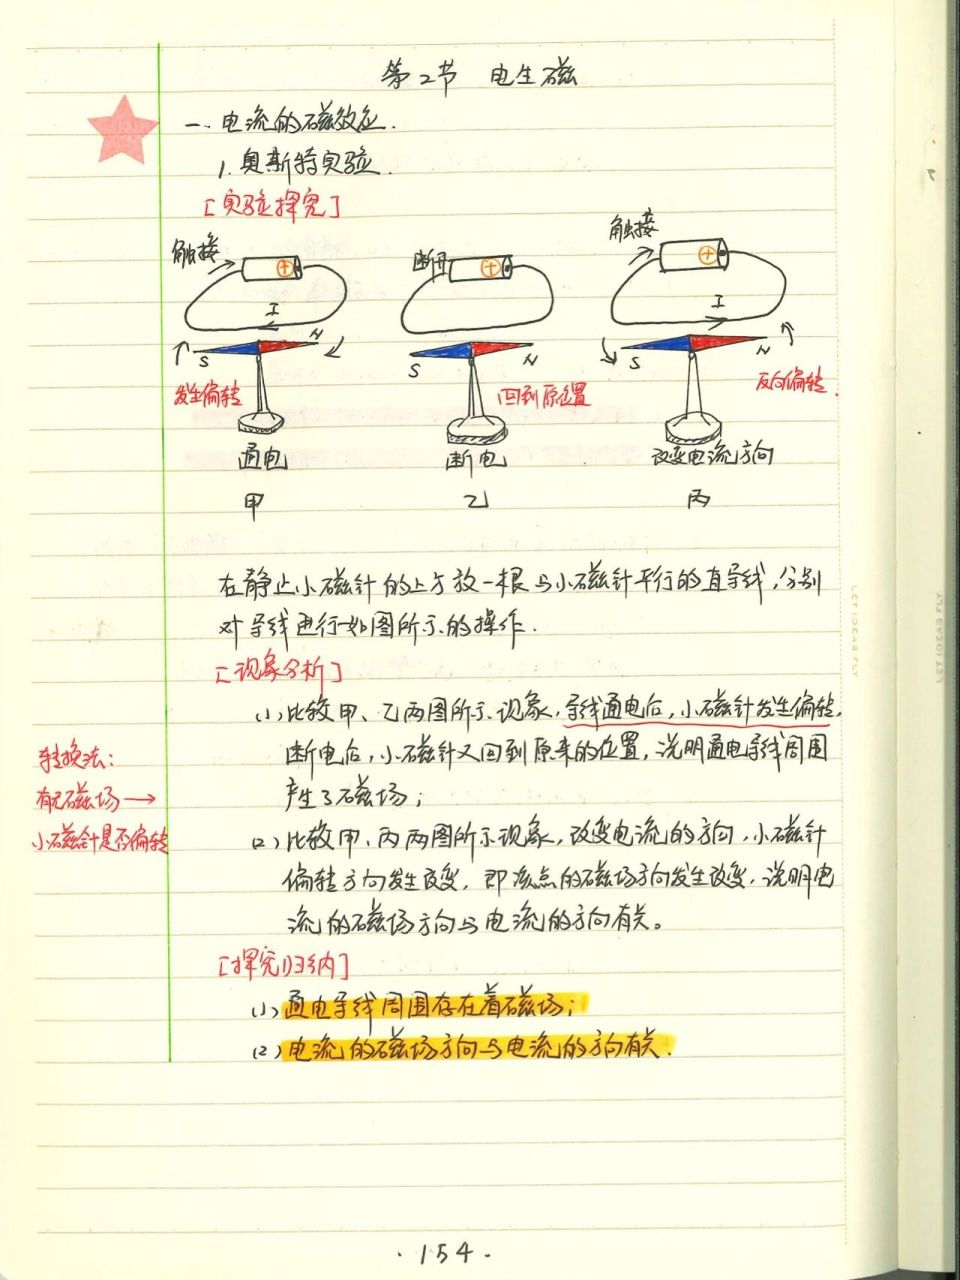 第2节 电生磁
一. 电流的磁效应.
1. 奥斯特实验.
[实验探究]
触接
断开
触接
I
I
S
N
S
N
S
N
发生偏转
回到原位置
反向偏转.
通电
断电
改变电流方向
甲
乙
丙
在静止小磁针的上方放一根与小磁针平行的直导线,分别
对导线进行如图所示的操作.
[现象分析]
(1) 比较甲、乙两图所示现象,导线通电后,小磁针发生偏转,
断电后,小磁针又回到原来的位置,说明通电导线周围
产生了磁场;
转换法:
有无磁场→
小磁针是否偏转
(2) 比较甲、丙两图所示现象,改变电流的方向,小磁针
偏转方向发生改变,即该点的磁场方向发生改变,说明电
流的磁场方向与电流的方向有关。
[探究归纳]
(1) 通电导线周围存在着磁场;
(2) 电流的磁场方向与电流的方向有关.
LET IDEAS FLY
LET IDEAS FLY
·154·